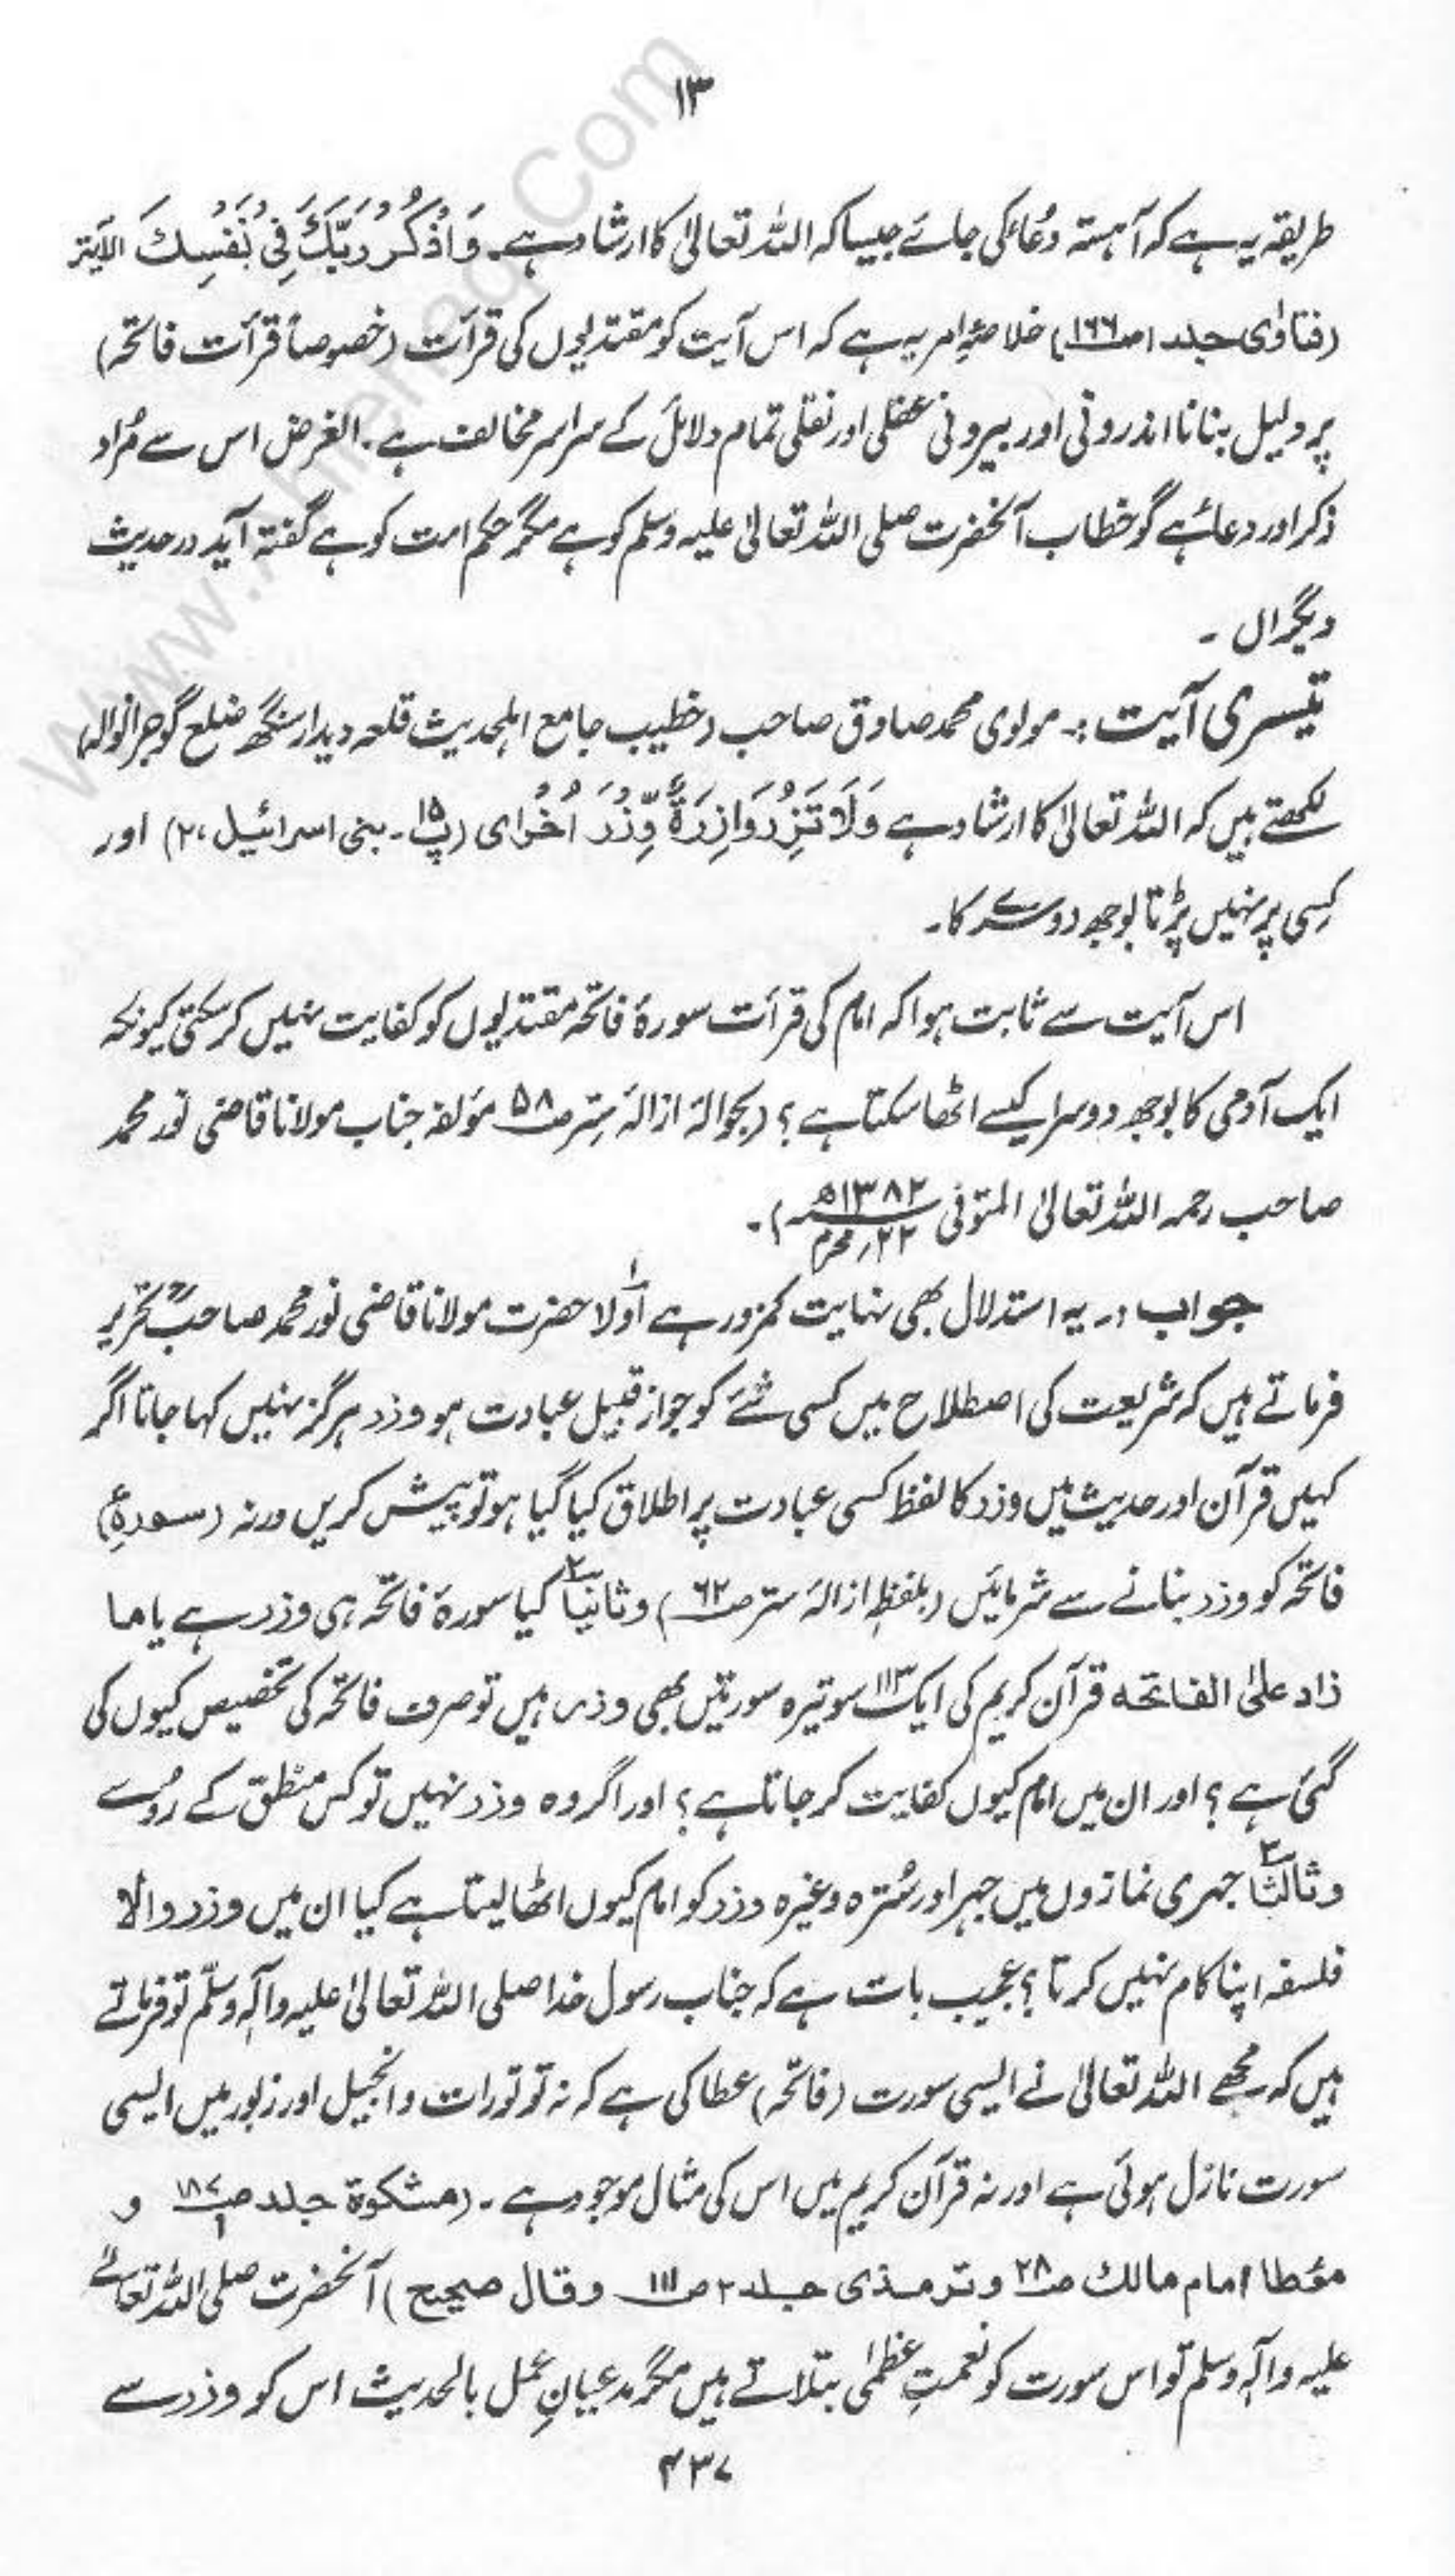 ۱۳
طریقہ یہ ہے کہ آہستہ دُعاء کی جائے جیسا کہ اللہ تعالیٰ کا ارشاد ہے۔ وَاذْكُرْ رَبَّكَ فِي نَفْسِكَ الآیۃ
(فتاوٰی جلد ۱ ص۱۶۶) خلاصۂ امر یہ ہے کہ اس آیت کو مقتدیوں کی قرأت (خصوصاً قرأت فاتحہ)
پر دلیل بنانا اندرونی اور بیرونی عقلی اور نقلی تمام دلائل کے سراسر مخالف ہے۔ الغرض اس سے مُراد
ذکر اور دعاء ہے گو خطاب آنحضرت صلی اللہ تعالیٰ علیہ وسلم کو ہے مگر حکم امت کو ہے گفتہ آید در حدیث
دیگراں ۔
تیسری آیت :۔ مولوی محمد صادق صاحب (خطیب جامع اہلحدیث قلعہ دیدار سنگھ ضلع گوجرانوالہ)
لکھتے ہیں کہ اللہ تعالیٰ کا ارشاد ہے وَلَا تَزِرُ وَازِرَةٌ وِّزْرَ اُخْرٰی (پ۱۵۔ بنی اسرائیل، ۲) اور
کِسی پر نہیں پڑتا بوجھ دوسرے کا۔
اس آیت سے ثابت ہوا کہ امام کی قرأت سورۂ فاتحہ مقتدیوں کو کفایت نہیں کر سکتی کیونکہ
ایک آدمی کا بوجھ دوسرا کیسے اٹھا سکتا ہے؟ (بحوالہ ازالۂ ستر ص۵۸ مؤلفہ جناب مولانا قاضی نور محمد
صاحب رحمہ اللہ تعالیٰ المتوفی ۱۳۸۲ھ ۲۲؍محرم)۔
جواب :۔ یہ استدلال بھی نہایت کمزور ہے اوّلاً۱ حضرت مولانا قاضی نور محمد صاحبؒ تحریر
فرماتے ہیں کہ شریعت کی اصطلاح میں کسی شئے کو جو از قبیل عبادت ہو وزر ہرگز نہیں کہا جاتا اگر
کہیں قرآن اور حدیث میں وزر کا لفظ کسی عبادت پر اطلاق کیا گیا ہو تو پیش کریں ورنہ (سورۂ)
فاتحہ کو وزر بنانے سے شرمائیں (بلفظہٖ ازالۂ ستر ص۶۲) وثانیاً۲ کیا سورۂ فاتحہ ہی وزر ہے یا ما
زاد علیٰ الفاتحہ قرآن کریم کی ایک سو تیرہ ۱۱۳ سورتیں بھی وزر ہیں تو صرف فاتحہ کی تخصیص کیوں کی
گئی ہے؟ اور ان میں امام کیوں کفایت کر جاتا ہے؟ اور اگر وہ وزر نہیں تو کس منطق کے رُو سے
وثالثاً۳ جہری نمازوں میں جہر اور سُترہ وغیرہ وزر کو امام کیوں اٹھا لیتا ہے کیا ان میں وزر والا
فلسفہ اپنا کام نہیں کرتا؟ عجیب بات ہے کہ جناب رسول خدا صلی اللہ تعالیٰ علیہ وآلہٖ وسلّم تو فرماتے
ہیں کہ مجھے اللہ تعالیٰ نے ایسی سورت (فاتحہ) عطا کی ہے کہ نہ تو تورات وانجیل اور زبور میں ایسی
سورت نازل ہوئی ہے اور نہ قرآن کریم میں اس کی مثال موجود ہے۔ (مشکوٰۃ جلد ۱ ص۱۸۷ و
مؤطا امام مالک ص۲۸ وترمذی جلد ۲ ص۱۱۱ وقال صحیح) آنحضرت صلی اللہ تعالےٰ
علیہ وآلہٖ وسلم تو اس سورت کو نعمتِ عظمٰی بتلاتے ہیں مگر مدعیانِ عمل بالحدیث اس کو وزر سے
۴۳۷
www. Com